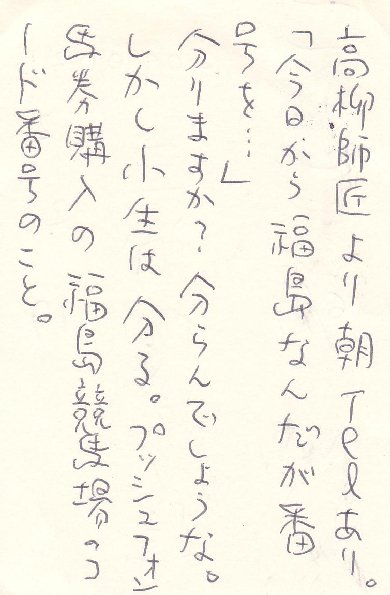 高柳師匠より朝Telあり。
「今日から福島なんだが番
号を…」
分りますか?分らんでしょうな。
しかし小生は分る。プッシュフォン
馬券購入の福島競馬場のコ
ード番号のこと。